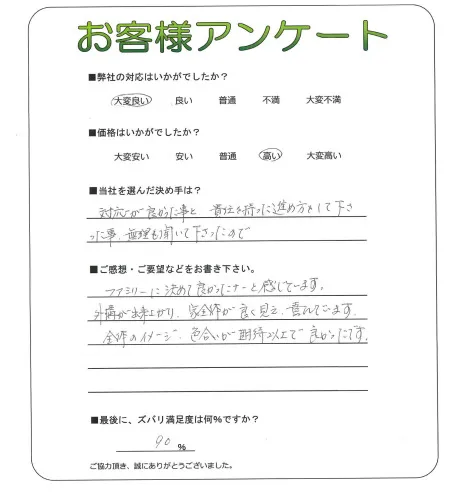 お客様アンケート
■弊社の対応はいかがでしたか?
大変良い 良い 普通 不満 大変不満
■価格はいかがでしたか?
大変安い 安い 普通 高い 大変高い
■当社を選んだ決め手は?
対応が良かった事と、責任を持った進め方をして下さ
った事、無理も聞いて下さったので
■ご感想・ご要望などをお書き下さい。
ファミリーに決めて良かったナーと感じています。
外構が出来上がり、家全体が良く見え、喜んでいます。
全体のイメージ、色合いが期待以上で良かったです。
■最後に、ズバリ満足度は何%ですか?
90 %
ご協力頂き、誠にありがとうございました。